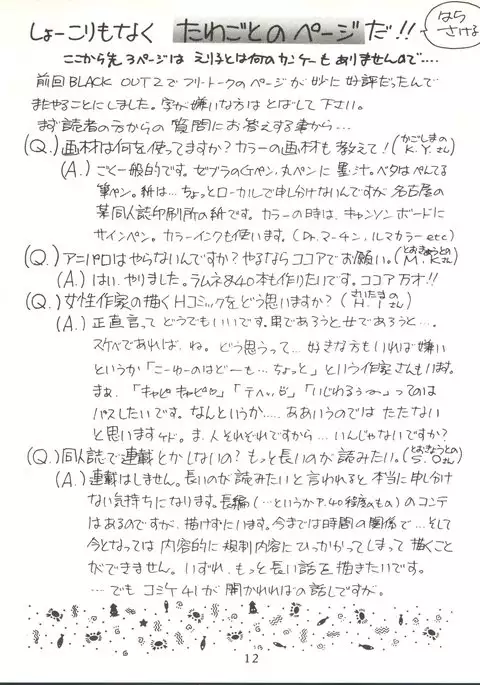 しょーこりもなく たわごとのページだ!!
なら さける
ここから先 3ページは えり子とは何のカンケーも ありませんので‥‥
前回BLACK OUT2でフリートークのページが妙に好評だったんで
またやることにしました。字が嫌いな方は とばして下さい。
まず読者の方からの 質問にお答えする事から…
(Q.)画材は何を使ってますか?カラーの画材も教えて!(かごしまの K.Yさん)
(A.)ごく一般的です。ゼブラのGペン,丸ペンに 墨汁。ベタはぺんてる
筆ペン。紙は… ちょっとローカルで申し分けないんですが 名古屋の
某同人誌印刷所の紙です。カラーの時は、キャンソン ボードに
サインペン。カラーインクも使います。(Dr.マーチン,ルマカラー etc)
(Q.)アニパロはやらないんですか?やるならココアでお願い。(とおきょうとの M.Kさん)
(A.)はい、やりました。ラムネ&40本も作りたいです。ココア万才!!
(Q.)女性作家の描くHコミックをどう思いますか?(さいたまの H.Iさん)
(A.)正直言って どうでもいいです。男であろうと女であろうと…。
スケベであれば、ね。どう思うって… 好きな方もいれば 嫌い
というか「こーゆーのはどーも…ちょっと」という作家さんもいます。
まぁ、「キャピキャピ」「テヘッ」「いじわるぅ~」ってのは
パスしたいです。なんというか‥‥。ああいうのでは たたない
と思いますケド。ま、人それぞれですから… いんじゃないですか?
(Q.)同人誌で連載とかしないの?もっと長いのが読みたい。(とおきょうとの S.Oさん)
(A.)連載はしません。長いのが読みたいと言われると 本当に申し分け
ない気持ちになります。長編(…というかP.40程度のもの)のコンテ
はあるのですが、描けずにいます。今までは時間の関係で…そして
今となっては 内容的に 規制内容に ひっかかってしまって 描くこと
ができません。いずれ、もっと長い話を描きたいです。
…でも コミケ41が 開かれればの 話しですが。
12